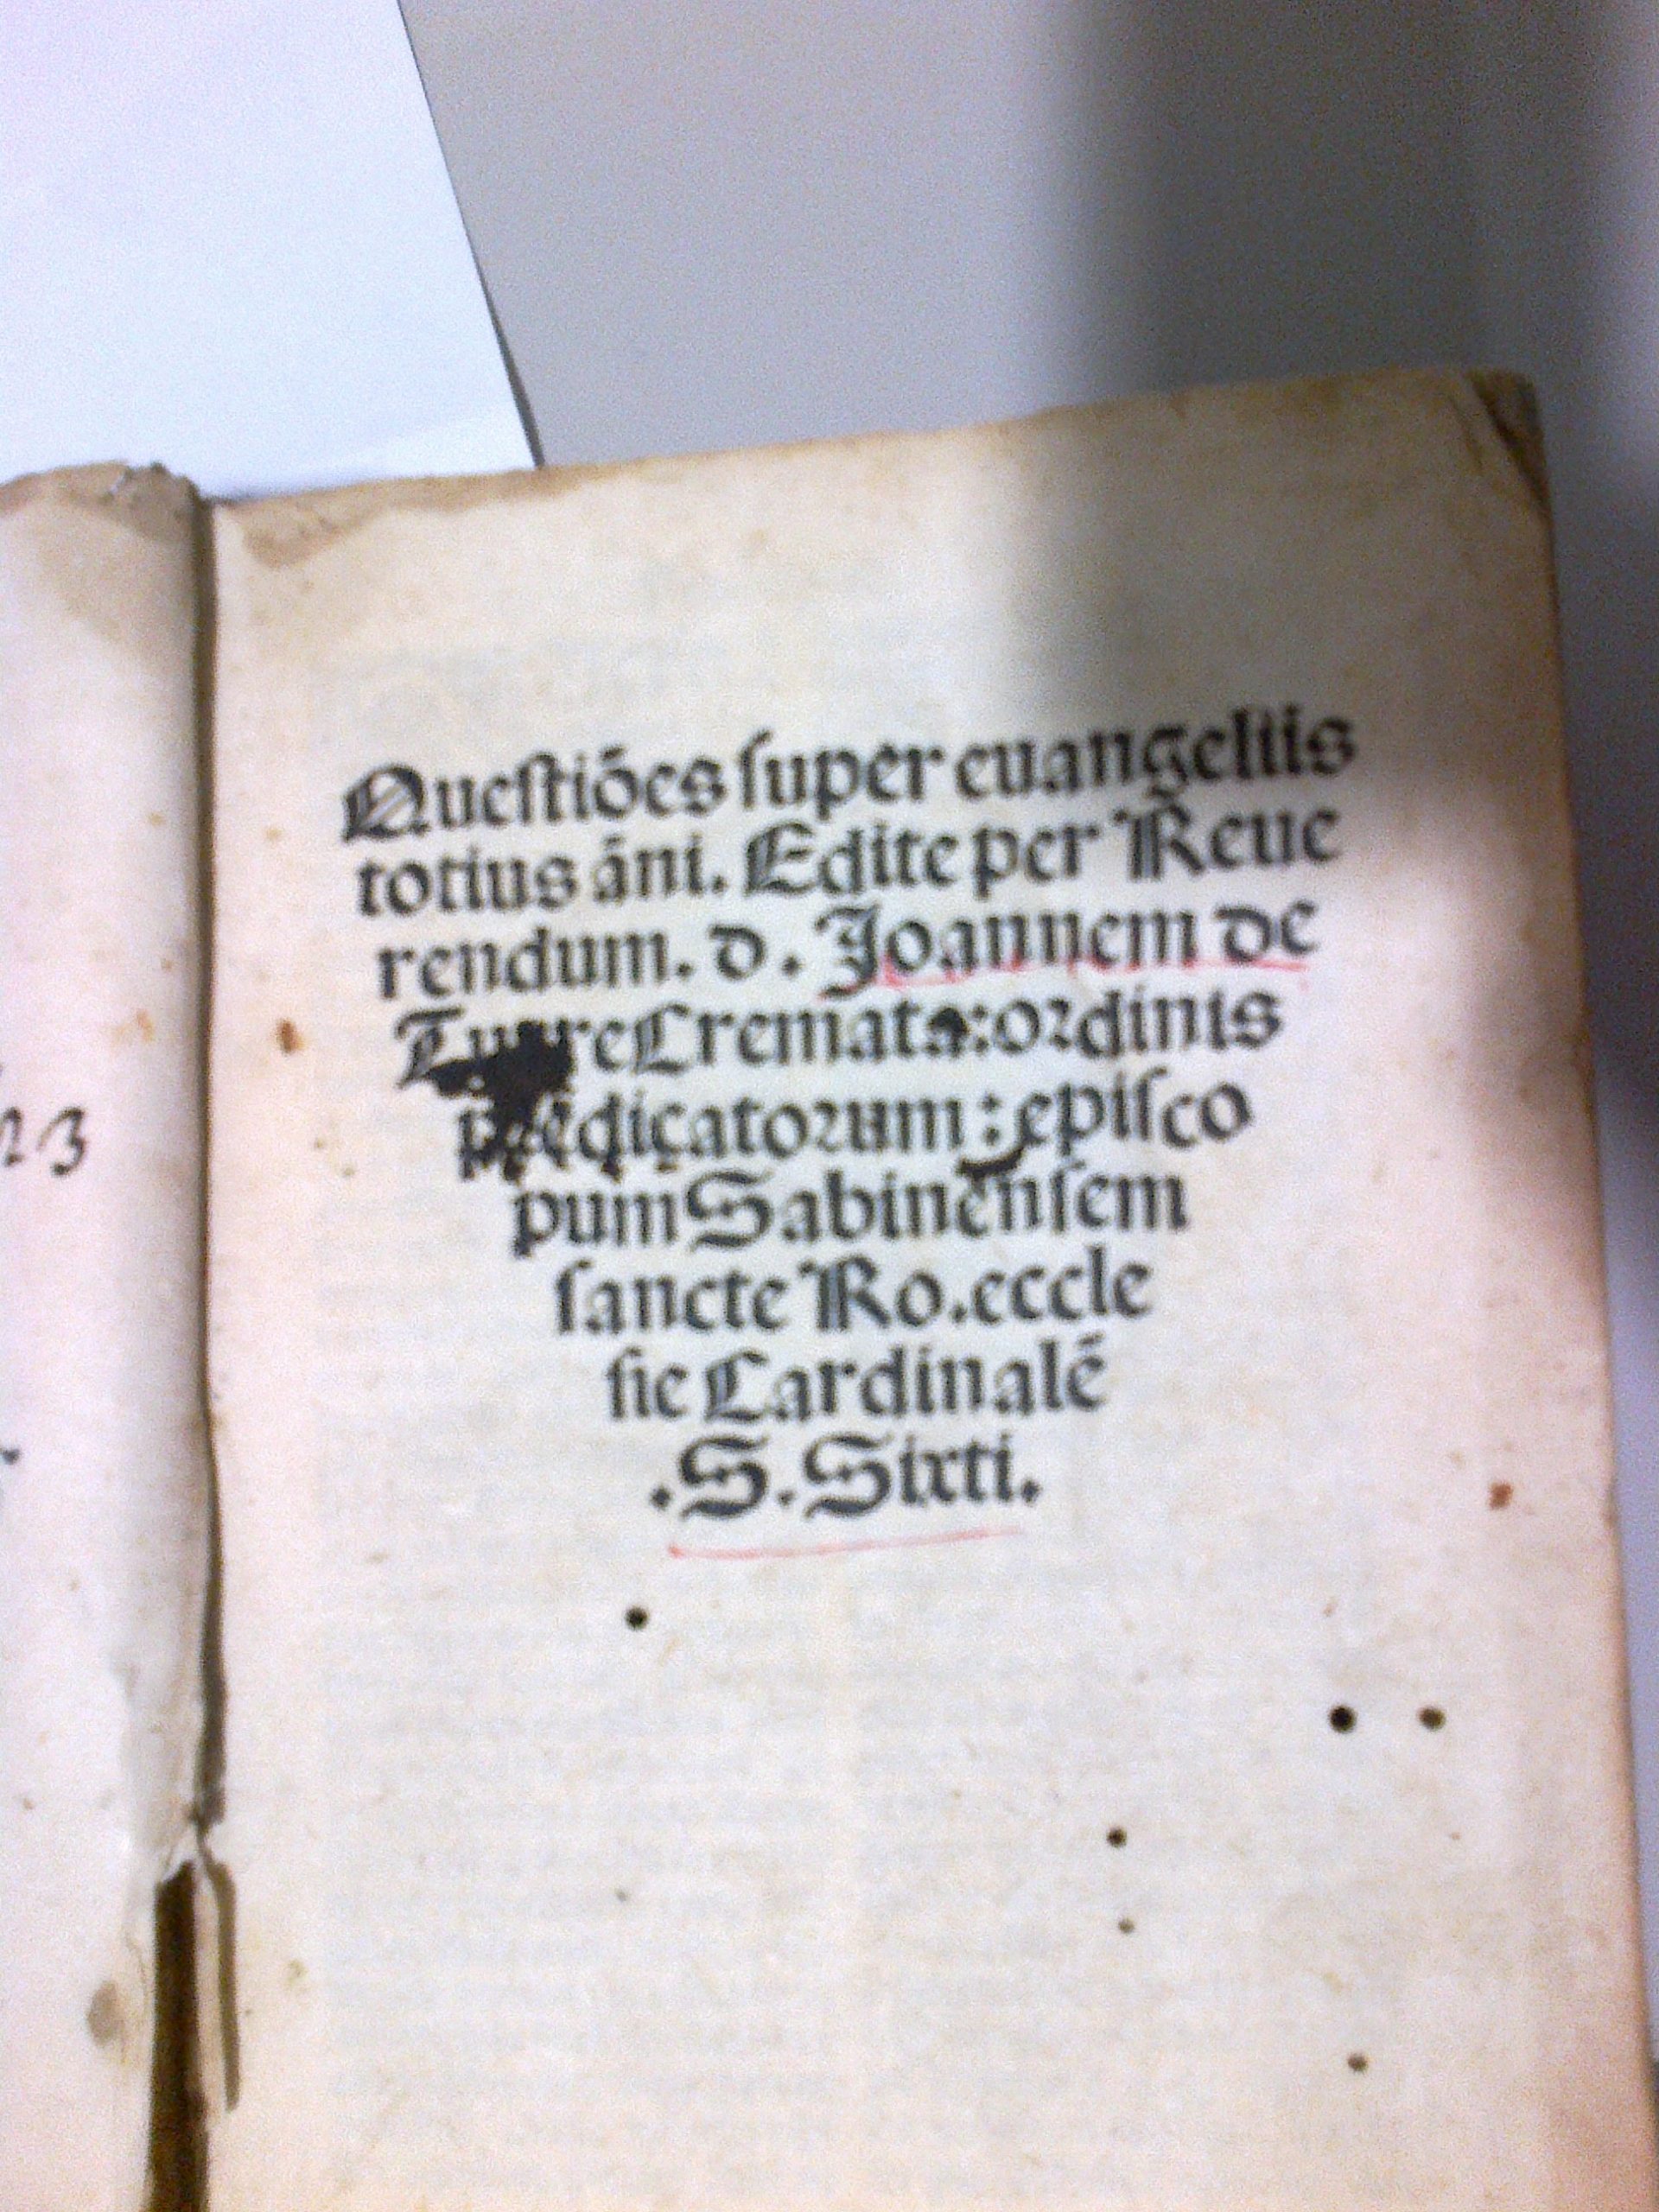 Queſtiões ſuper euangeliis
totius āni. Edite per Reue
rendum. d. Joannem de
Cremata: ordinis
predicatorum: epiſco
pum Sabinenſem
ſancte Ro. eccle
ſie Cardinalē
.S. Sixti.